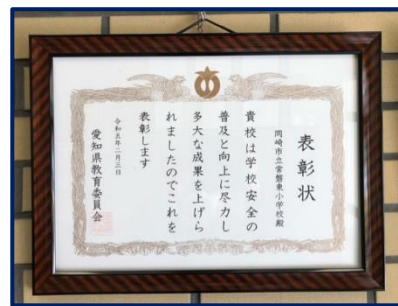 表彰状
岡崎市立常磐東小学校殿
貴校は学校安全の
普及と向上に尽力し
多大な成果を上げら
れましたのでこれを
表彰します
令和五年二月三日
愛知県教育委員会